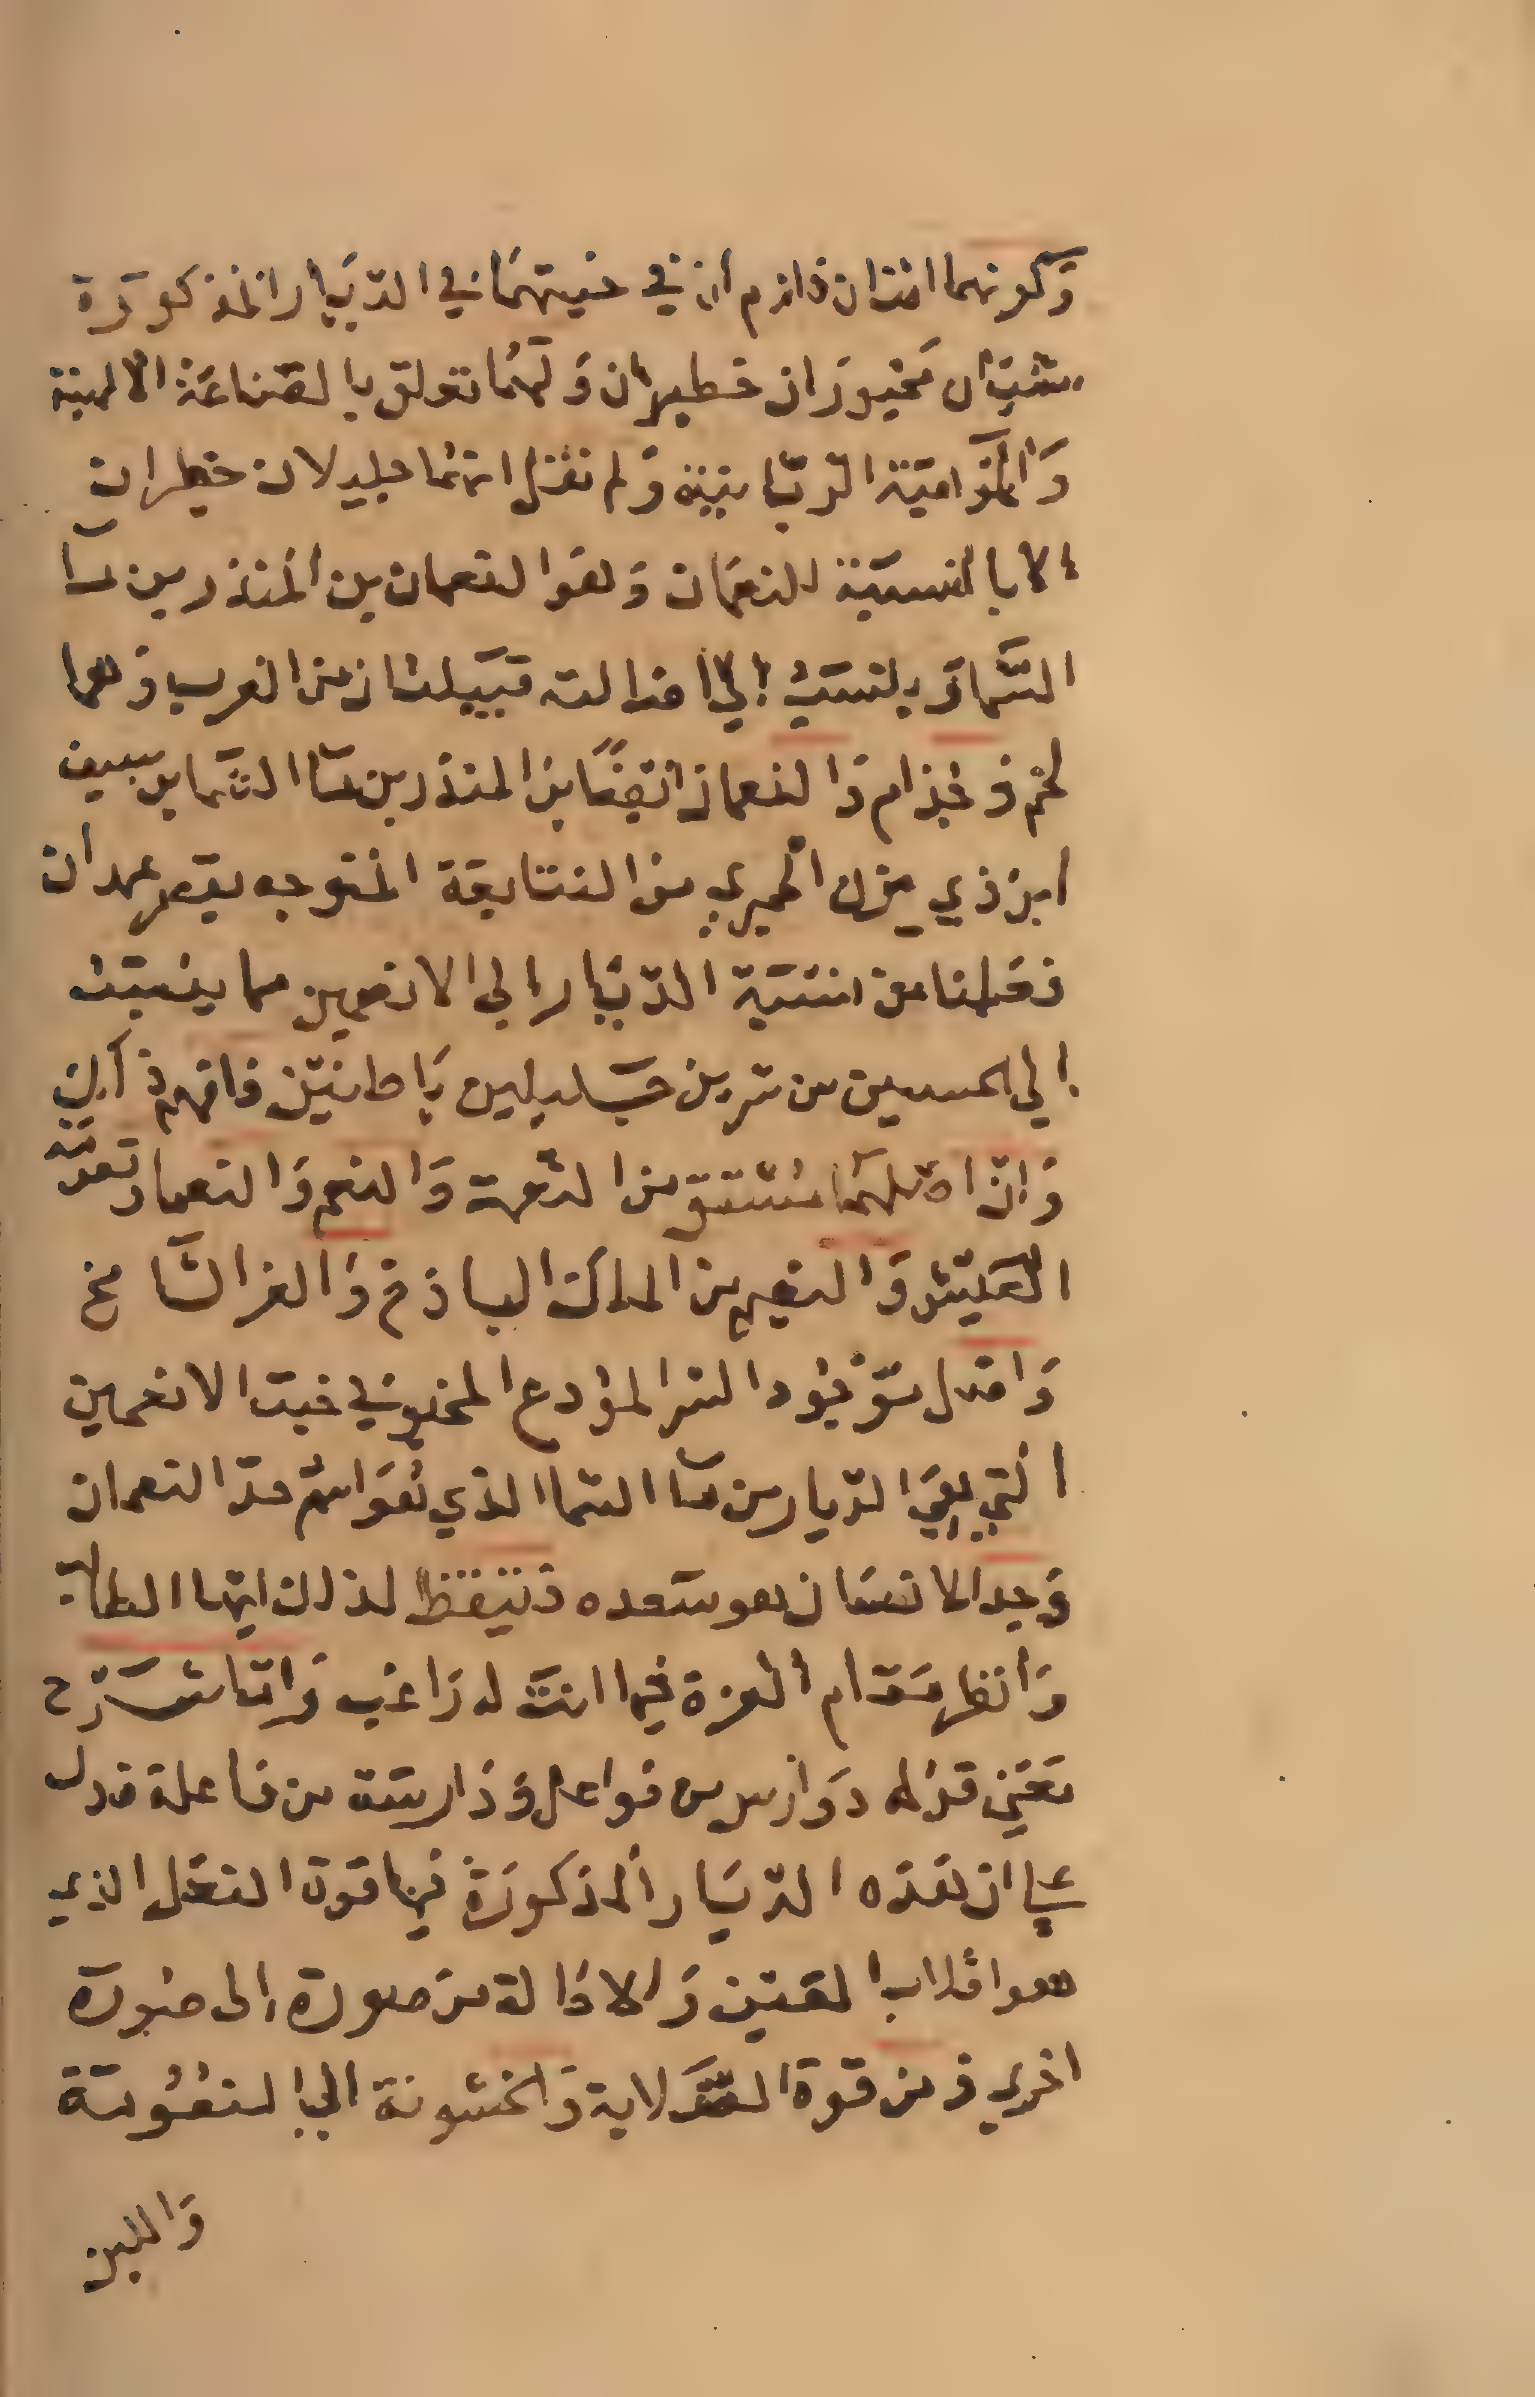 وَكونهما اثنتان فافهم ان في خبيتهمَا في الديَار المذكورَة
شيئان مخبوءَان خطيران وَلهمَا تعلق بالصّناعَة الالهية
وَالموَاهبة الربّانيه وَلم نقل انهمَا جليلان خطيران
الا بالنسبَة للنعمَان وَهوَ النعمان بن المنذر بن مآ
السّمَاوَ ينسَبُ إلى قبيلتان من العرب وَهما
لخم وَجذام وَالنعمان ايضًا بن المنذر بن مآ السّما بن سيف
ابن ذي يزن الحميري من التتابعَة المتوجه بقصر غمدان
فعَلمنا من نسبَة الديَار الى الانعمين مما ينسَبُ
إلى من سرين جَليلين بَاطنين فافهم ذَلك
وَانّ اصَلهمَا مشتق من النّعمة وَالنعم وَالنعما
العَيش وَالنعيم من الملك الباذخ وَالعز الشَّامخ
وَاصل مَوجُود السّر المودع المخزون في خبت الانعمين
التي هيَ الدّيار من مآ السّما الذي هُوَ اسم جدّ النعمان
وَجد الانسَان هو سَعده فتيقظ لذلك ايّها الطالب
وَانظر مقَام العزة فيما انتَ له رَاغب وَامّا شَرح
مَعَنى قوله دَوَارس من فواعل وَدَارسَة من فاعلة فدل
على ان هَذه الديَار المذكورَة فيها قوة الفعَل الذي
هو اقلاب العَين وَالاحَالة من صورة إلى صُورَة
اخري وَمن قوة الصَّلابة وَالخشونة إلى النعُومَة
وَاللين